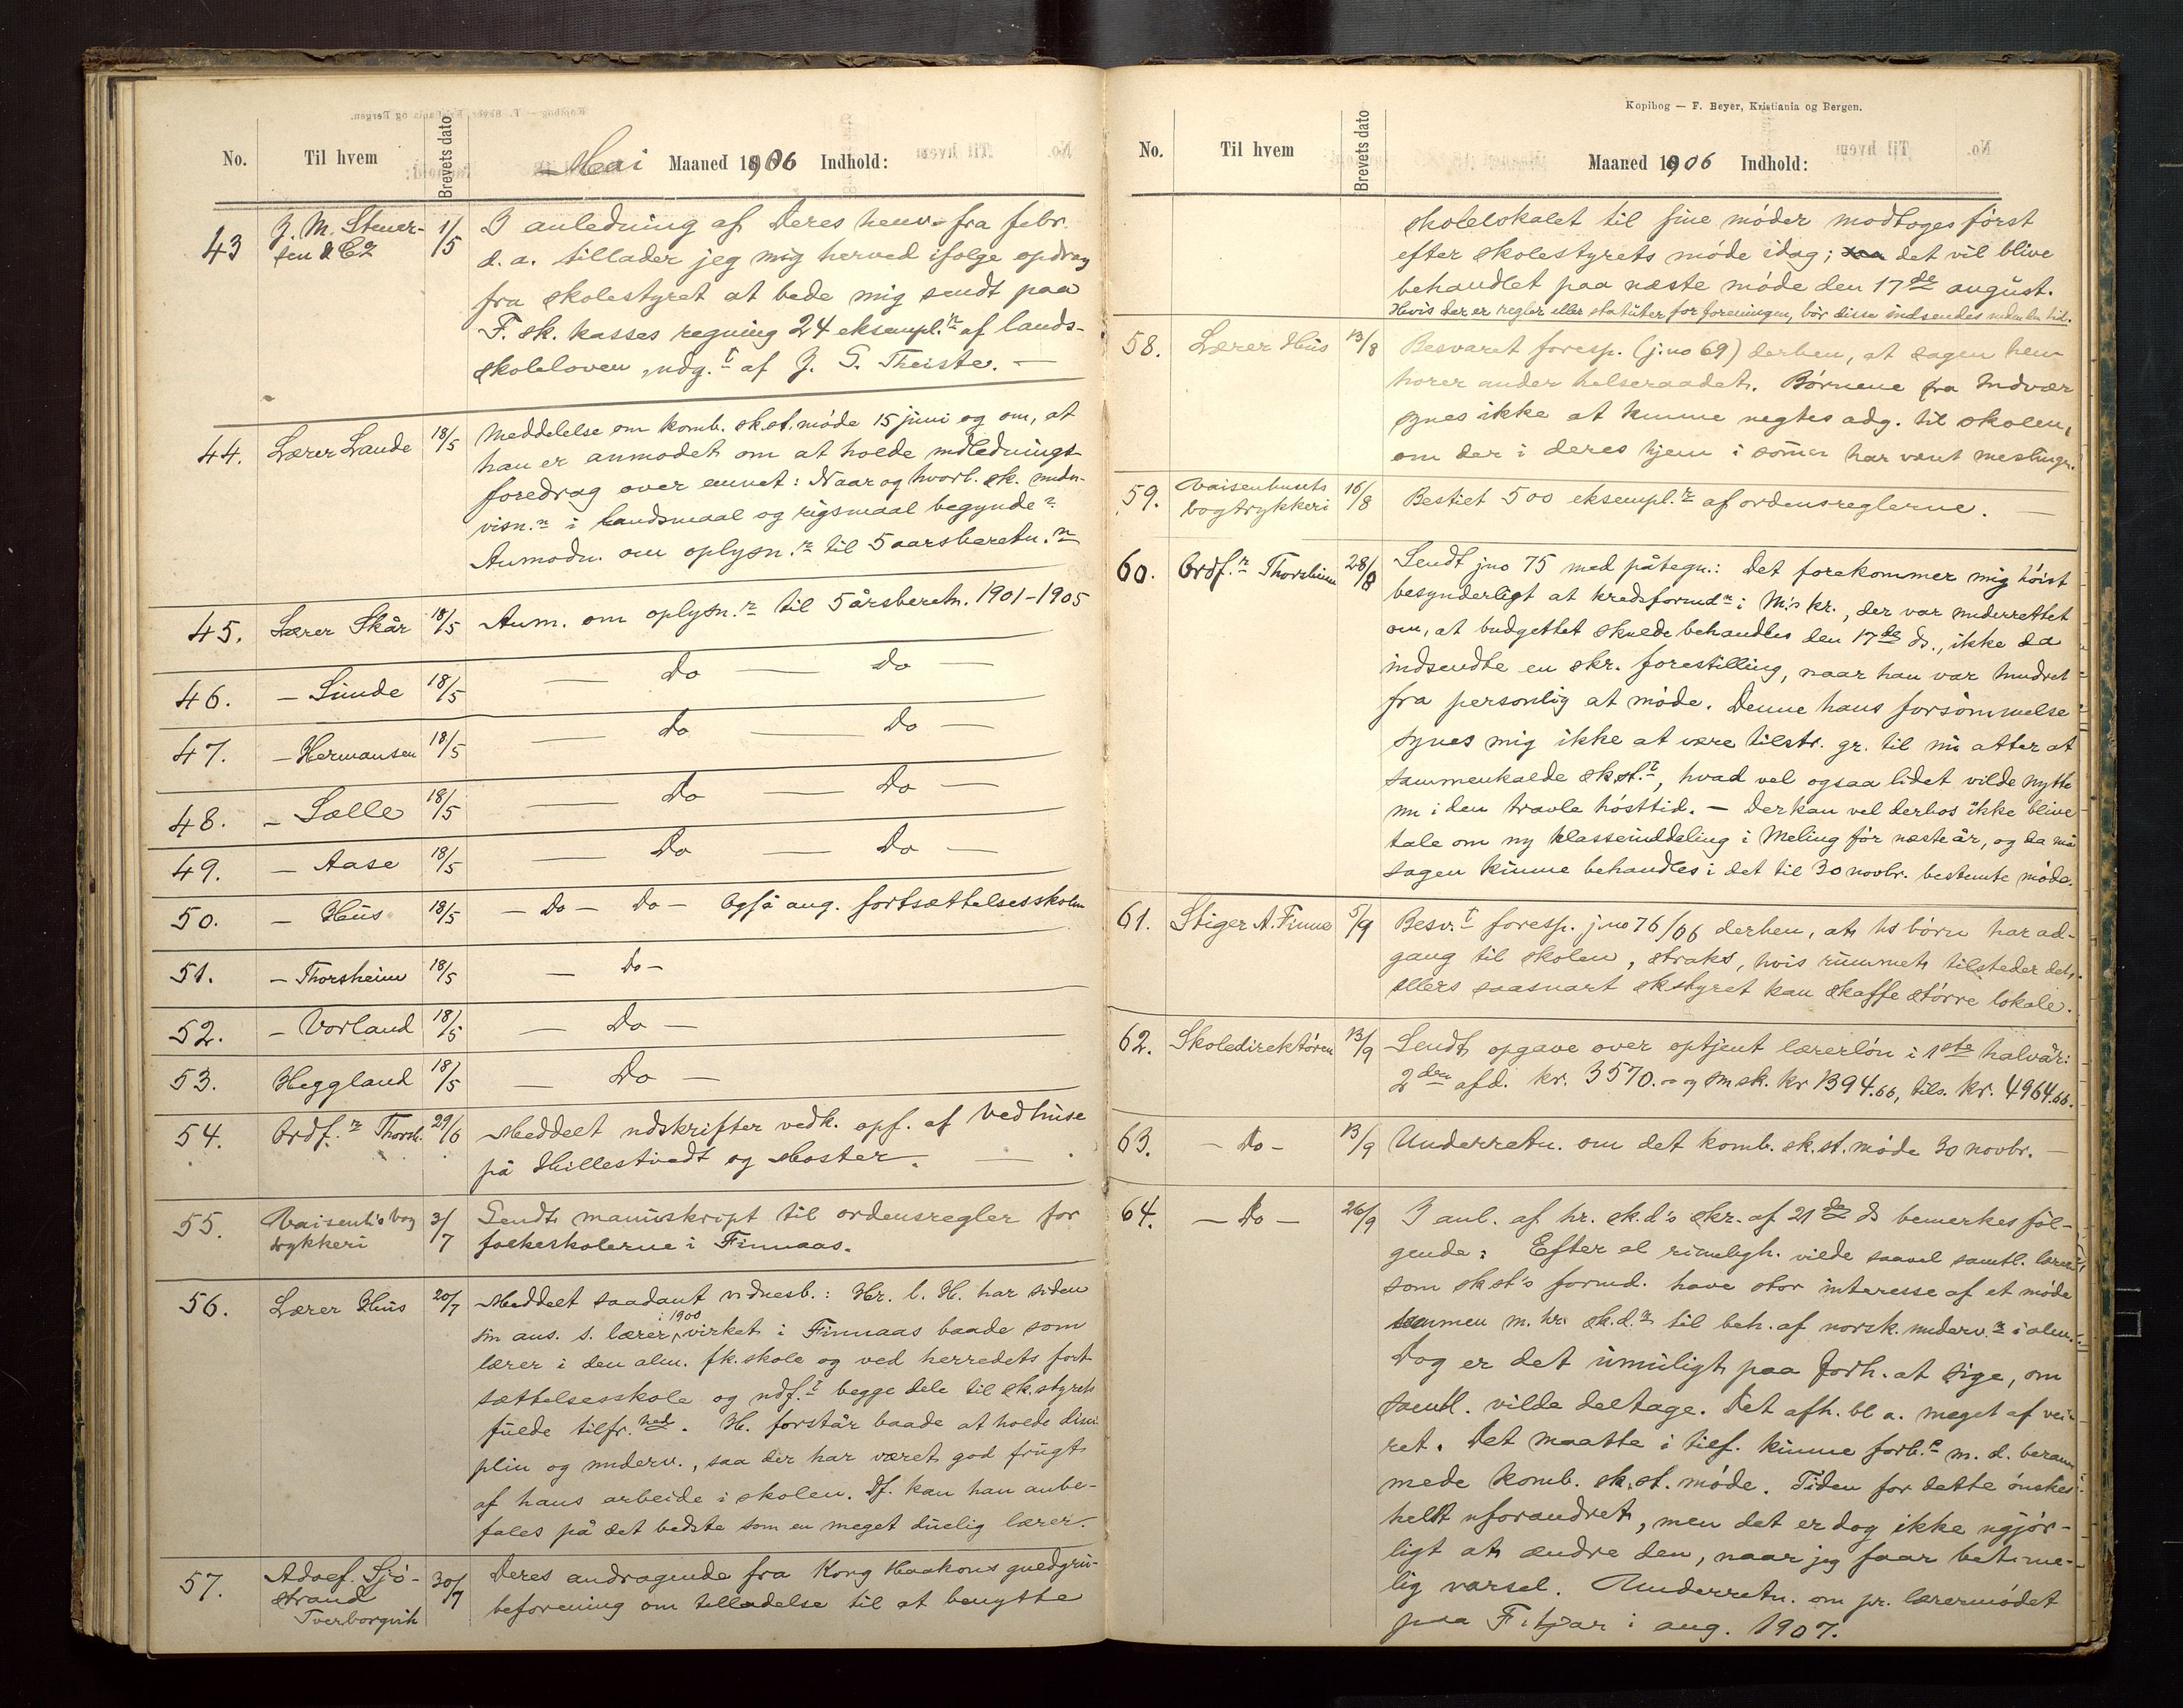 No. Til hvem Brevets dato Mai Maaned 1906 Indhold:
43 J. M. Stener- 1/5 I anledning af Deres henv. fra febr.
sen & Co d. a. tillader jeg mig herved ifølge opdrag
fra skolestyret at bede mig sendt paa
F. sk. kasses regning 24 eksempl.r af lands-
skoleloven, udg.t af J. G. Theiste. —
44. Lærer Lande 18/5 Meddelelse om komb. sk.st. møde 15 juni og om, at
han er anmodet om at holde indlednings-
foredrag over emnet: Naar og hvorl. sk. under-
visn.n i landsmaal og rigsmaal begynde?
Anmodn. om oplysn.r til 5 aarsberetn.n
45. Lærer Skår 18/5 Anm. om oplysn.r til 5 årsberetn. 1901-1905
46. — Sunde 18/5 — Do — Do —
47. — Hermansen 18/5 — Do — Do —
48. — Sælle 18/5 — Do — Do —
49. — Aase 18/5 — Do — Do —
50. — Hus 18/5 — Do — Do — Også ang. fortsættelsesskolen
51. — Thorsheim 18/5 — Do —
52. — Vorland 18/5 — Do —
53. Heggland 18/5 — Do —
54. Ordf.r Thorsh. 29/6 Meddelt udskrifter vedk. opf. af vedhuse
på Hillestvedt og Moster. —
55. Vaisenh's bog 3/7 Sendt manuskript til ordensregler for
trykkeri folkeskolerne i Finnaas.
56. Lærer Hus 20/7 Meddelt saadant vidnesb.: Hr. l. H. har siden
sin ans. s. lærer i 1900 virket i Finnaas baade som
lærer i den alm. fk.skole og ved herredets fort-
sættelsesskole og udf.t begge dele til sk.styrets
fulde tilfr.hed. H. forstår baade at holde disci-
plin og underv., saa der har været god frugt
af hans arbeide i skolen. Df. kan han anbe-
fales på det bedste som en meget duelig lærer.
57. Adolf Sjø- 30/7 Deres andragende fra Kong Haakons guldgru-
strand beforening om tilladelse til at benytte
Tverborgvik
Kopibog — F. Beyer, Kristiania og Bergen.
No. Til hvem Brevets dato Maaned 1906 Indhold:
skolelokalet til sine møder modtoges først
efter skolestyrets møde idag; saa det vil blive
behandlet paa næste møde den 17de august.
Hvis der er regler eller statuter for foreningen, bør disse indsendes inden den tid.
58. Lærer Hus 13/8 Besvaret foresp. (j.no 69) derhen, at sagen hen-
hører under helseraadet. Børnene fra Indvær
synes ikke at kunne negtes adg. til skolen,
om der i deres hjem i sommer har været meslinger.
59. Vaisenhusets 16/8 Bestilt 500 eksempl.r af ordensreglerne. —
bogtrykkeri
60. Ordf.r Thorsheim 28/8 Sendt jno 75 med påtegn.: Det forekommer mig høist
besynderligt at kredsformd.n i M's kr., der var underrettet
om, at budgettet skulde behandles den 17de ds., ikke da
indsendte en skr. forestilling, naar han var hindret
fra personlig at møde. Denne hans forsømmelse
synes mig ikke at være tilstr. gr. til nu atter at
sammenkalde sk.st.t, hvad vel ogsaa lidet vilde nytte
nu i den travle høsttid. — Der kan vel derhos ikke blive
tale om ny klasseinddeling i Meling før næste år, og da må
sagen kunne behandles i det til 30 novbr. bestemte møde.
61. Stiger A. Finne 5/9 Besv.t foresp. j.no 76/06 derhen, at hs børn har ad-
gang til skolen, straks, hvis rummet tilsteder det,
ellers saasnart skstyret kan skaffe større lokale.
62. Skoledirektøren 13/9 Sendt opgave over optjent lærerløn i 1ste halvår:
2den afd. kr. 3570.– og sm sk. kr 1394.66, tils. kr. 4964.66.
63. — Do — 13/9 Underretn. om det komb. sk.st. møde 30 novbr. —
64. — Do — 26/9 I anl. af hr. sk.d's skr. af 21de ds bemerkes føl-
gende: Efter al rimeligh. vilde saavel samtl. lærere
som sk st's formd. have stor interesse af et møde
sammen m. hr. sk.d.n til beh. af norsk.underv.n i alm.
Dog er det umuligt paa forh. at sige, om
samtl. vilde deltage. Det afh. bl a. meget af vei-
ret. Det maatte i tilf. kunne forb.e m. d. beram-
mede komb. sk.st. møde. Tiden for dette ønskes
helst uforandret, men det er dog ikke ugjør-
ligt at ændre den, naar jeg faar betime-
lig varsel. Underretn. om pr. lærermødet
paa Fitjar i aug. 1907.